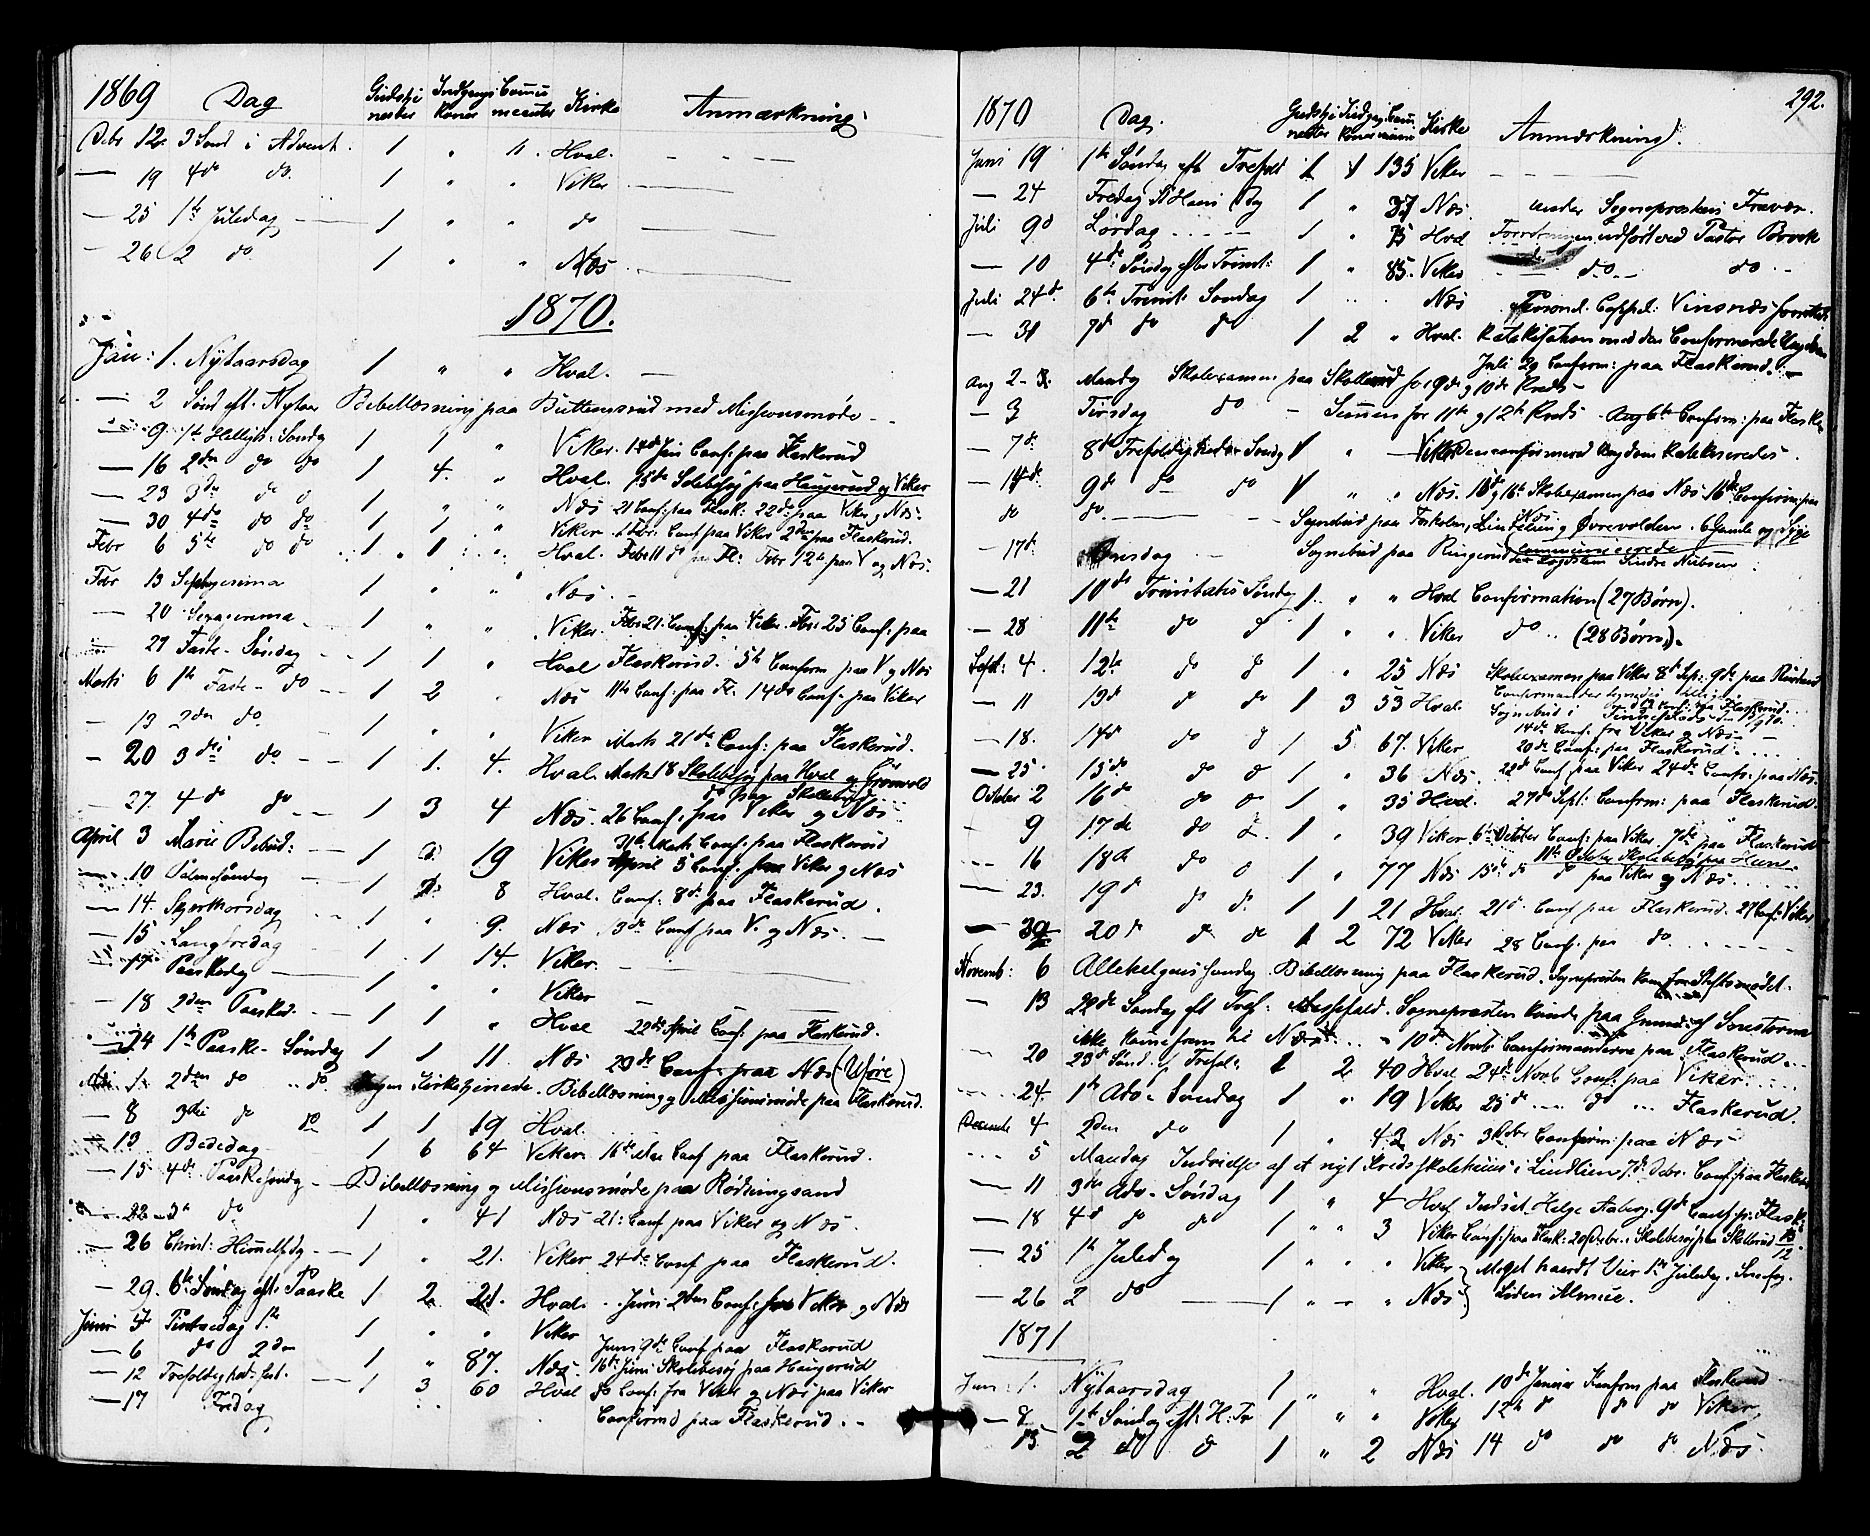 1869 Dag Gudstjenester Indgangskoner Communicanter Kirke Anmærkning.
Debr 12. 3 Sønd i Advent. 1 " 11. Hval.
— 19 4de do. 1 " " Viker
— 25 1te Juledag 1 " " do
— 26 2 do. 1 " " Næs
1870.
Jan: 1. Nytaarsdag 1 " " Hval. —
— 2 Sønd eft. Nytaar Bibellæsning paa med Missionsmøde —
— 9 1te Helligtr: Søndag 1 1 " Viker. 14de Jan Conf: paa Flaskerud
— 16 2den do do 1 4. " Hval. 15de Skolebesøg paa Haugerud og Viker
— 23 3die do do 1 " " Næs 21 Conf: paa Flask: 22de paa Viker og Næs.
— 30 4de do do 1 1 " Viker. 1 Febr. Conf paa Viker 2den paa Flaskerud.
Febr 6 5te do do 1 1 " Hval. Febr 11 do paa Fl: Febr 12te paa V og Næs.
Febr 13 Septuagesima 1 " " Næs. —
— 20 Sexagesima 1 " " Viker. Febr 21 Conf: paa Viker. Febr 25 Conf: paa
— 27 Faste-Søndag 1 1 " Hval Flaskerud. 5te Conform paa V og Næs
Marts 6 1te Faste-do 1 2 . Næs 11te Conf: paa Fl. 14de Conf: paa Viker
— 13 2den do. 1 . . Viker Marts 21de Conf: paa Flaskerud.
— 20 3die do 1 1. 4. Hval. Marts 18 Skolebesøg paa Hval og Grønvold
do paa Skollerud
— 27 4de do 1 3 4 Næs. 26 Conf: paa Viker og Næs
April 3 Mariæ Bebud: 1 19 Viker 31te Marts Conf: paa Flaskerud
April 5 Conf. paa Viker og Næs
— 10 Palmesøndag 1 8 Hval. Conf: 8de paa Flaskerud.
— 14. Skjerthorsdag 1 " 9. Næs 13de Conf paa V. og Næs. —
— 15 Langfredag 1 1 14. Viker. —
— 17 Paaskedag 1 " " Viker —
— 18 2den Paasked. 1 1 " Hval 22de April Conf: paa Flaskerud.
24 1te Paaske-Søndag 1 1 11. Næs 29de Conf: paa Næs (Uføre)
Mai 1. 2den do do Ingen Kirketjeneste. Bibellæsning og Missionsmøde paa Flaskerud.
— 8 3die do do 1 1 19 Hval.
— 13 Bededag 1 6 64 Viker 16de Mai Conf paa Flaskerud.
— 15 4de Paaskesøndag — Bibellæsning og Missionsmøde paa Rødningsand
— 22 do 1 " 41 Næs 21: Conf paa Viker og Næs.
— 26 Christ: Himmelfdg 1 " 21. Viker 24de Conf paa Flaskerud.
— 29. 6te Søndag eft: Paaske 1 2 21. Hval. Juni 2den Conf: fra Viker og Næs
Juni 5 Pintsedag 1te 1 . . Viker
— 6 do 2den 1 " 87. Næs Juni 9de Conf paa Flaskerud
16de Juni Skolebesøg paa Haugerud
— 12 Trefoldighedsfest. 1 3 60 Hval do Conf: fra Viker og Næs paa Viker
— 17 Fredag Confirmd paa Flaskerud. —
292.
1870 Dag. Gudstjenester Indgangskoner Kirke Anmærkning.
Juni 19 1te Søndag eft Trefold 1 1 135 Viker
— 24 Fredag St Hans Dag 1 " 37 Næs. under Sogneprestens Fravær.
Juli 9d Lørdag 1 " 75 Hval Forretningen udført ved Pastor Brock
— 10 4de Søndag efter Trinit: 1 " 85. Viker do do
Juli 24de 6te Trinit: Søndag 1 Næs af Personel Cappel: Vinsnæs forrettet
— 31 7de do do 1 2 " Hval. Katekisation med den Confirmerede Ungdom
Juli 29 Conform: paa Flaskerud. —
Aug 2 Mandg Skolexamen paa Skollerud for 9de og 10de Kreds
— 3 Tirsdag do Semmen for 11te og 12te Kreds Aug 6te Conform: paa Flasker
— 7de 8de Trefoldigheds Søndg 1 " — Viker Den confirmered Ungdom Katekiseredes.
— 14de 9de do do 1 " " Næs. 15de og 16te Skolexamen paa Næs 16de Confirm: paa
do do. Sognebud paa Foskolm, Lindelien og Øvrevolden. 6 Gamle og Syge
communicerede
— 17de Onsdag Sognebud paa Ringerud
— 21 10de Trinitatis Søndag 1 " " Hval Confirmation (27 Børn).
— 28 11te do do 1 " " Viker do (28 Børn).
Sept: 4 12te do do 1 " 25 Næs Skolexamen paa Viker 8de Sept: 9de paa
— 11 13de do do 1 3 53 Hval.
— 18. 14de do do 1 5 67. Viker 14de Conf: fra Viker og Næs
20de Conf: paa Flaskerud.
— 25 15de do do 1 " 36 Næs. 22de Conf paa Viker 24de Conf: paa Næs.
October 2 16de do do 1 " 35 Hval. 27de Sept: Confrm: paa Flaskerud.
— 9 17de do do 1 " 39 Viker 6te October Conf: paa Viker 7de paa Flaskerud
11te October Skolebesøg paa
— 16 18de do do 1 " 77 Næs 15de do do paa Viker og Næs
— 23. 19de do do. 1 1 21 Hval. 21de Conf paa Flaskerud. 27 Conf: Viker
— 30 20de do do 1 2 72 Viker 28 Conf. paa do.
Novemb: 6 Allehelgenssøndag. Bibellæsning paa Flaskerud. Sogneprsten kom fra Stiftsmødet.
— 13 22de Søndag eft Tref: Messefald. Sognepresten kunde paa Grund af Snestorm
ikke komme frem til Næs. — 10de Novbr Confirmanterne paa Flaskerud
— 20 23de Sønd. eft Trefol: 1 2 40 Hval 24de Novb Conf: paa Viker.
— 24. 1te Adv. Søndag 1 " 19 Viker 25de do Flaskerud.
Decembr 4 2den do 1 " 42 Næs 3die Debr Confirm: paa Næs
— 5 Mandag Indvielse af et nyt Kredsskolehuus i Lindelien 7de Debr. Conf: paa Flaskerud
— 11 3die Adv-Søndag 1 " 4 Hval Indsat Helge Aaberg. 9de Conf. p: Flask.
— 18 4de do do 1 " 3 Viker Conf: paa Flask: 20 Decbr: Skolebesøg paa Skollerud 15/12
— 25 1te Juledag 1 " " Viker } Meget haardt Veir 1te Juledag. Snefog.
— 26 2 do 1 — " Næs } Liden Almue.
1871
Jan: 1. Nytaarsdag 1 " " Hval. 10de Januar Konfrm paa Flaskerud.
— 8 1te Søndag eft: H:Tr 1 " " Viker 12te do do do Viker,
— 15 2 do do 1 " 2 Næs 14 do do do Næs.